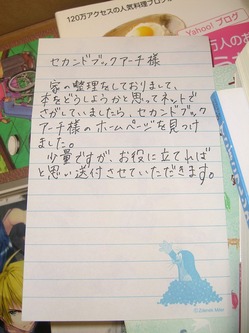 120万アクセスの人気料理ブログ
Yahoo!ブログ
セカンドブックアーチ様
家の整理をしておりまして、
本をどうしようかと思ってネットで
さがしていましたら、セカンドブック
アーチ様のホームページを見つけ
ました。
少量ですが、お役に立てれば
と思い送付させていただきます。